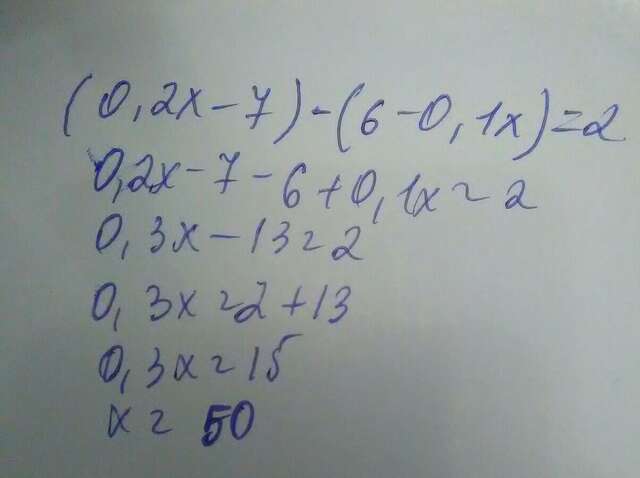 (0,2x-7)-(6-0,1x)=2
0,2x-7-6+0,1x=2
0,3x-13=2
0,3x=2+13
0,3x=15
x=50